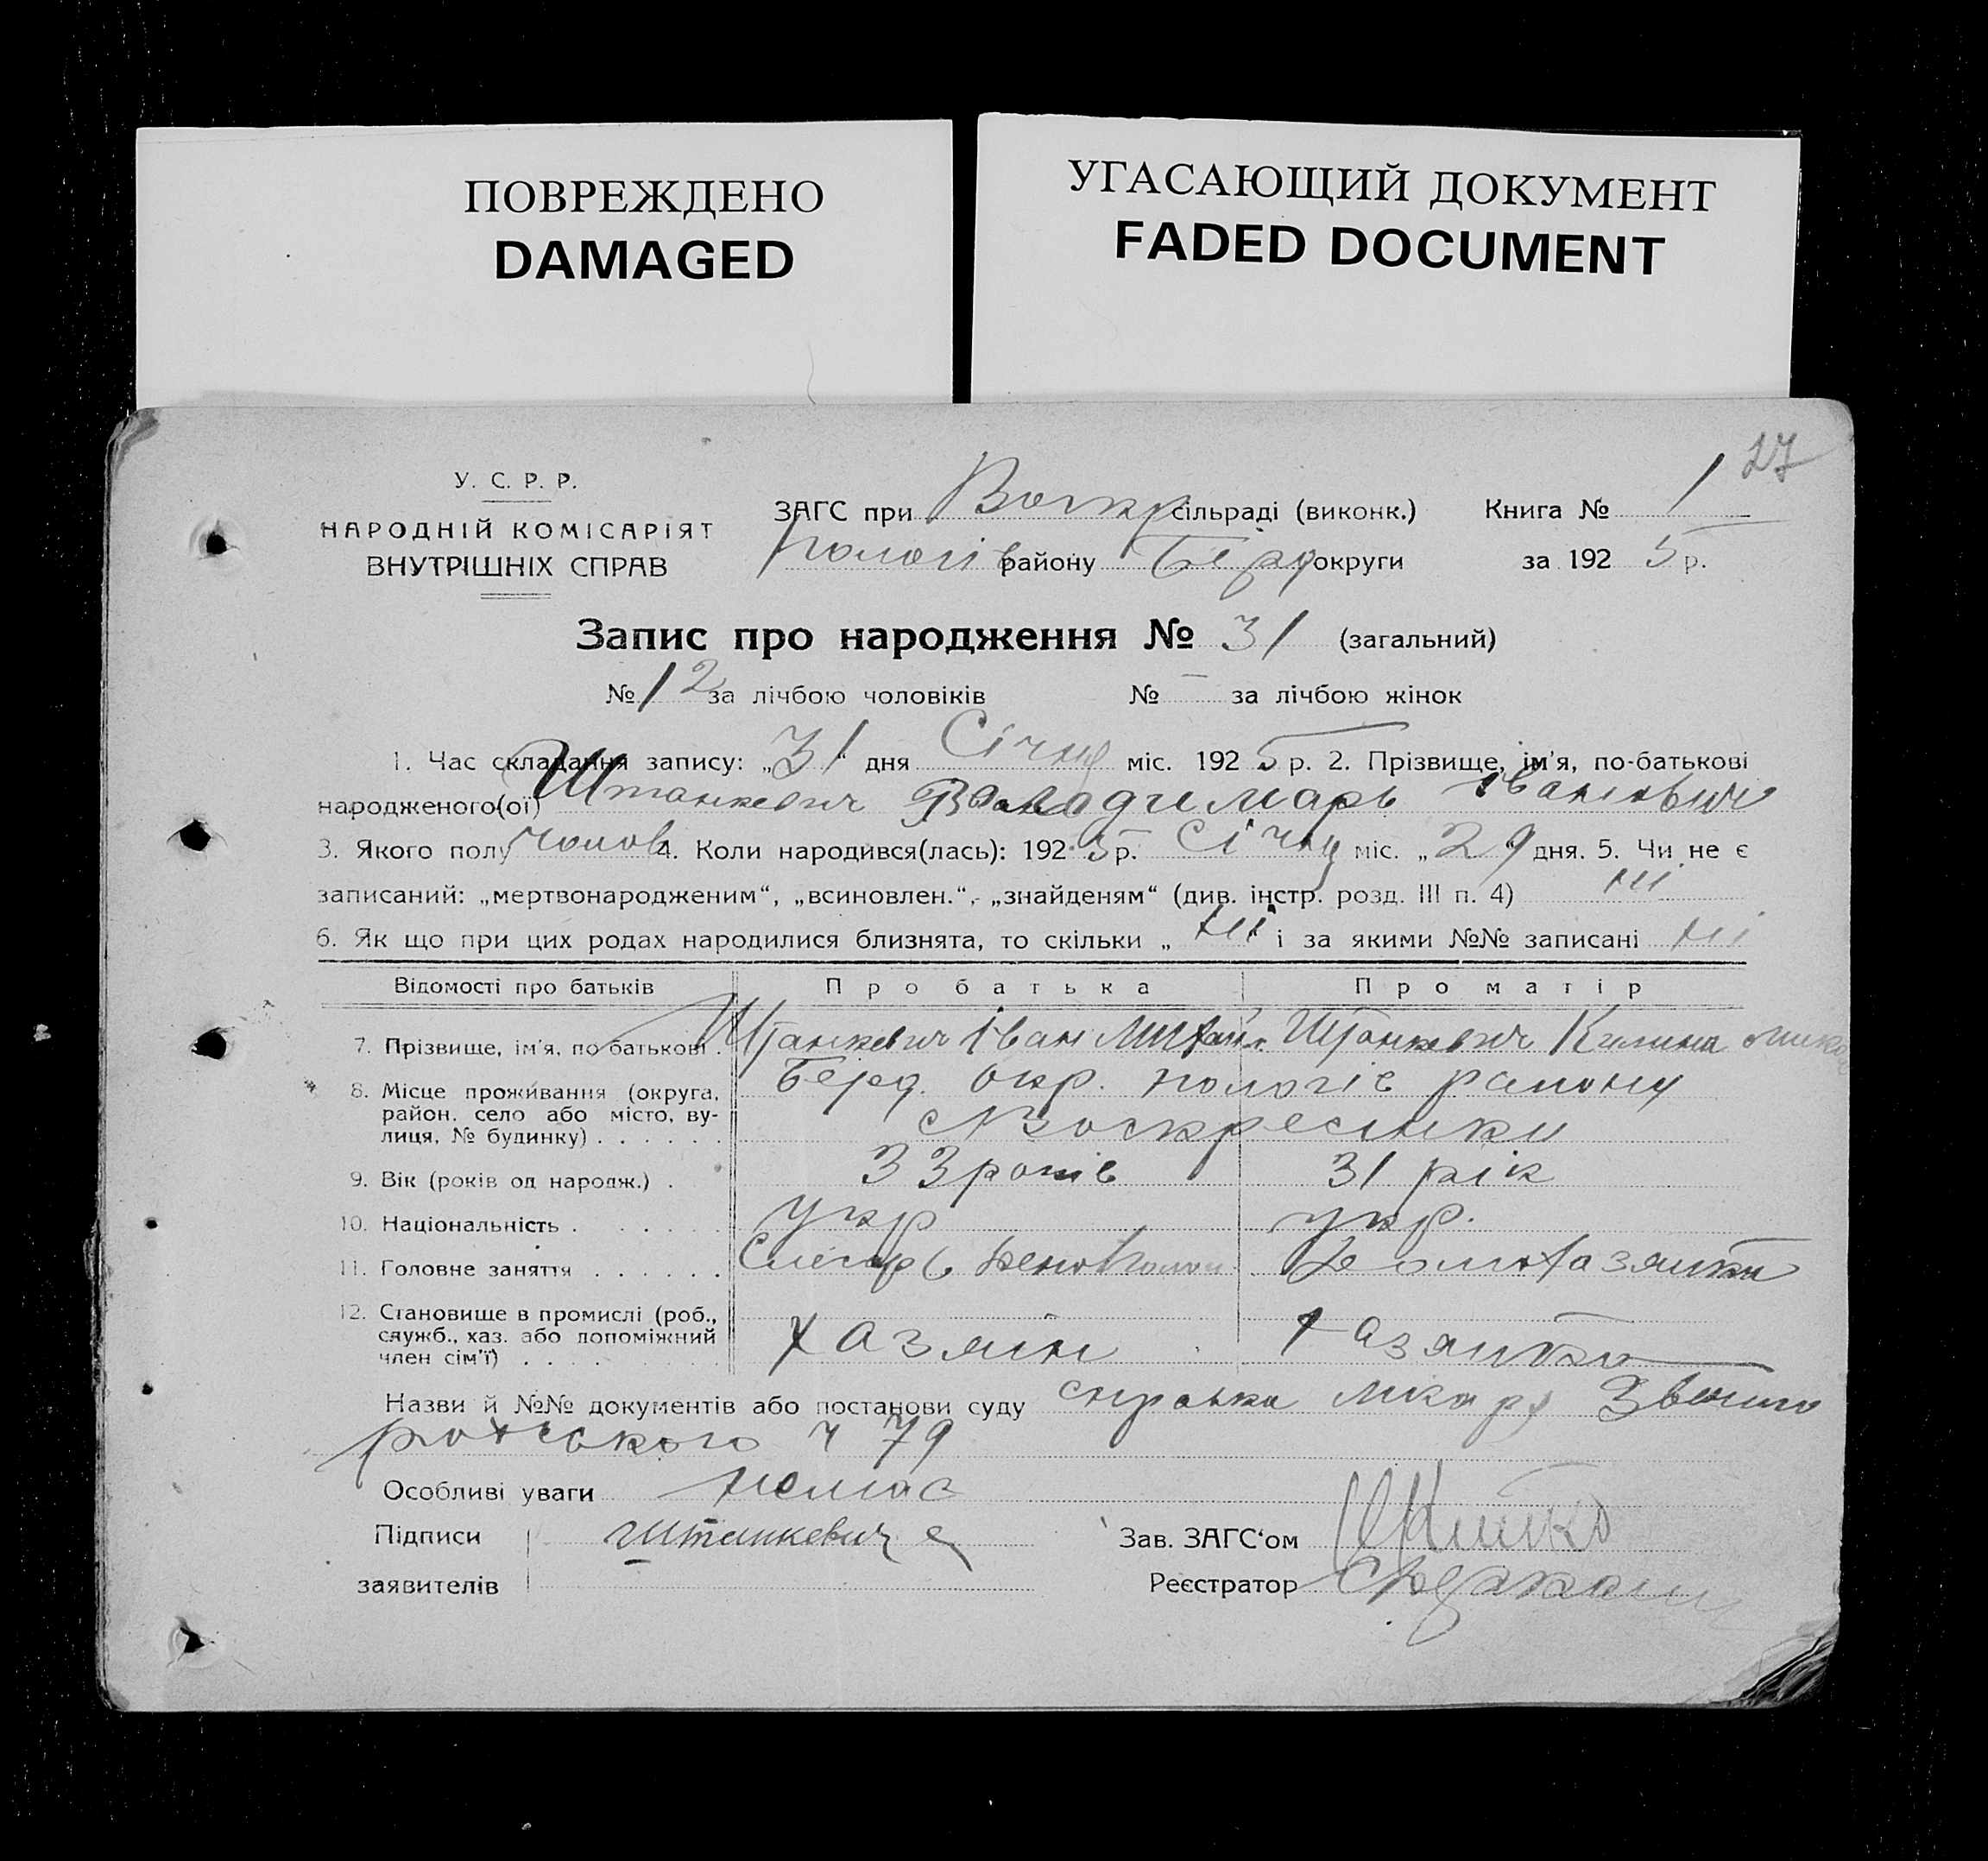 ПОВРЕЖДЕНО
DAMAGED
УГАСАЮЩИЙ ДОКУМЕНТ
FADED DOCUMENT
27
У. С. Р. Р.
НАРОДНІЙ КОМІСАРІЯТ
ВНУТРІШНІХ СПРАВ
ЗАГС при Воскр сільраді (виконк.) Книга № 1
Пологів району Бердр округи за 1925 р.
Запис про народження № 31 (загальний)
№ 12 за лічбою чоловіків № — за лічбою жінок
1. Час складання запису: „31“ дня Січня міс. 1925 р. 2. Прізвище, ім'я, по-батькові
народженого(ої) Штанкевич Володимарь Іванович
3. Якого полу чолов. 4. Коли народився(лась): 1925 р. Січня міс. „29 дня. 5. Чи не є
записаний: „мертвонародженим“, „всиновлен.“, „знайденям“ (див. інстр. розд. III п. 4) ні
6. Як що при цих родах народилися близнята, то скільки „ ні “ і за якими №№ записані ні
Відомості про батьків Про батька Про матір
7. Прізвище, ім'я, по батькові . Штанкевич Іван Михай. Штанкевич Килина Мико
8. Місце проживання (округа, район, село або місто, вулиця, № будинку) . . . . . . Берд. окр. Пологів району
с Воскресінки
9. Вік (років од народж.) . 33 років 31 рік
10. Національність . . . . . укр укр.
11. Головне заняття . . . . . . Слесарь Домохазяйка
12. Становище в промислі (роб., служб., хаз. або допоміжний член сім'ї) . . . . хазяїн хазяйка
Назви й №№ документів або постанови суду справка лікаря Звениго
родського ч 79
Особливі уваги немає
Підписи Штанкевич Зав. ЗАГС'ом
заявителів Реєстратор